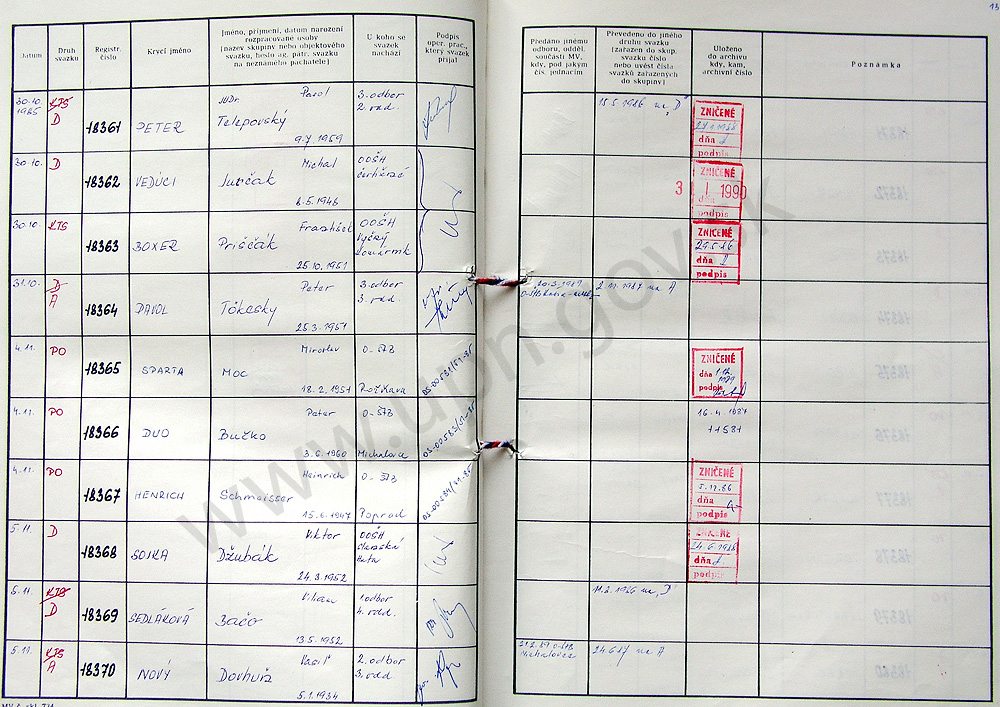 13
Datum
Druh svazku
Registr. číslo
Krycí jméno
Jméno, příjmení, datum narození
rozpracované osoby
(název skupiny nebo objektového
svazku, heslo ag. pátr. svazku
na neznámého pachatele)
U koho se
svazek
nachází
Podpis
oper. prac.,
který svazek
přijal
Předáno jinému
odboru, odděl.
součásti MV,
kdy, pod jakým
čís. jednacím
Převedeno do jiného
druhu svazku
(zařazen do skup.
svazku číslo
nebo uvést čísla
svazků zařazených
do skupiny)
Uloženo
do archivu
kdy, kam,
archivní číslo
Poznámka
30.10.
1985
KTS
D
18361
PETER
JUDr. Pavol
Telepovský
9.7.1959
3. odbor
2. odd.
18.5.1986 na „D“
ZNIČENÉ
dňa
podpis
30.10.
D
18362
VEDÚCI
Michal
Jurčák
1946
OOŠH
ZNIČENÉ
1990
dňa
podpis
30.10.
KTS
18363
BOXER
František
Priščák
25.10.1951
OOŠH
Vyšný
ZNIČENÉ
29.5.86
dňa
podpis
31.10.
D
A
18364
PAVOL
Peter
Tökesky
25.3.1951
3. odbor
3. odd.
2.11.1987 na A
4.11.
PO
18365
SPARTA
Miroslav
Moc
18.2.1951
O-ŠTB
Rožňava
OS-00582/51-85
ZNIČENÉ
dňa
podpis
4.11.
PO
18366
DUO
Peter
Bučko
3.6.1960
O-ŠTB
Michalovce
OS-00583/51-85
16.4.1987
11581
4.11.
PO
18367
HENRICH
Heinrich
Schmeisser
15.6.1947
O-ŠTB
Poprad
OS-00584/51-85
ZNIČENÉ
5.12.86
dňa
podpis
5.11.
D
18368
SOJKA
Viktor
Džubák
24.3.1952
OOŠH
Huta
ZNIČENÉ
24.6.1988
dňa
podpis
5.11.
KTS
D
18369
SEDLÁKOVÁ
Bačo
13.5.1952
1. odbor
4. odd.
1986 na „D“
5.11.
KTS
A
18370
NOVÝ
Vasiľ
5.1.1934
2. odbor
3. odd.
Michalovce
na A
www.upn.gov.sk